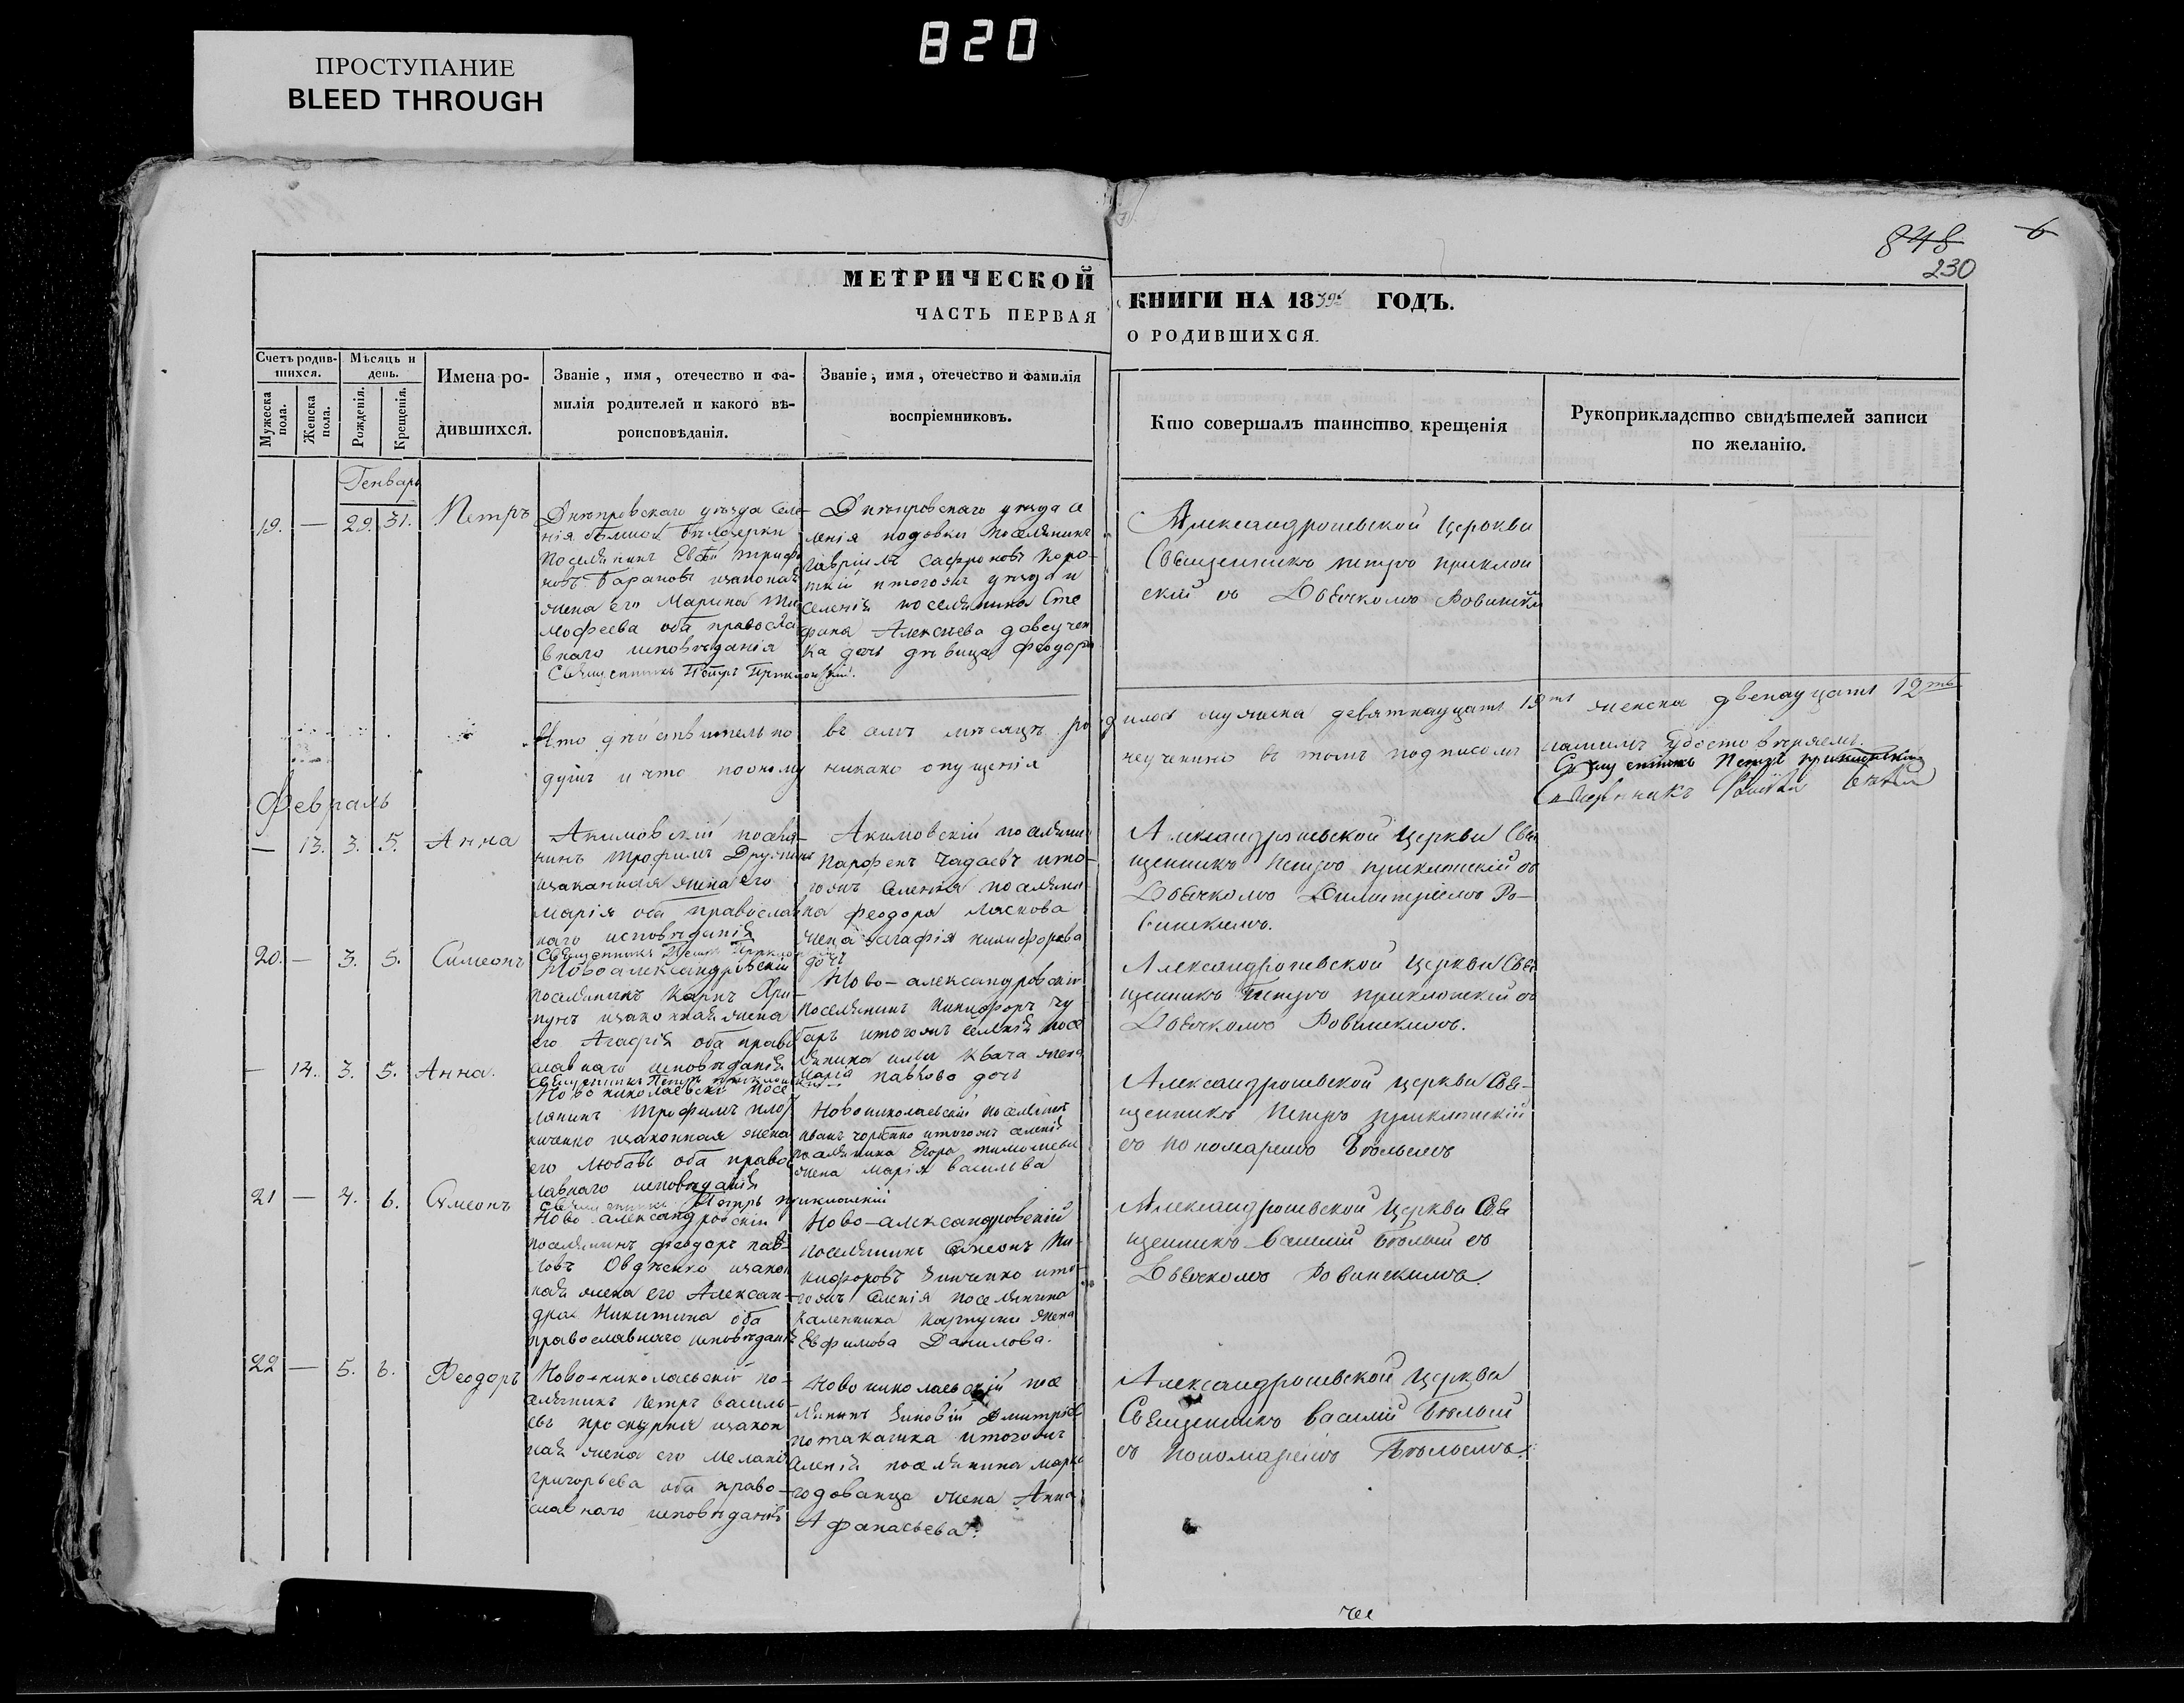 820
ПРОСТУПАНИЕ
BLEED THROUGH
848 6
230
МЕТРИЧЕСКОЙ КНИГИ НА 1839й ГОДЪ.
ЧАСТЬ ПЕРВАЯ О РОДИВШИХСЯ.
Счетъ родив-
шихся.
Мужеска пола.
Женска пола.
Мѣсяцъ и
день.
Рожденія.
Крещенія.
Имена ро-
дившихся.
Званіе, имя, отечество и фа-
милія родителей и какого вѣ-
роисповѣданія.
Званіе, имя, отечество и фамилія
воспріемниковъ.
Кто совершалъ таинство крещенія
Рукоприкладство свидѣтелей записи
по желанію.
Генварь
19. — 29. 31. Петръ
Днѣпровскаго уѣзда Селе-
нія большой Бѣлозерки
поселянинъ Трифо
новъ Барановъ изаконная
жена его Марина Ти
мофеева оба правосла
внаго исповѣданія
Священникъ Петръ Приклонскій.
Днѣпровскаго уѣзда се
ленія подовки поселянинъ
гавріилъ Сафроновъ Коро-
ткій итогожъ уѣзда и
селенія поселянина Сте
фана Алексѣева
ка дочь дѣвица Феодора
Александровской Церкви
Священникъ петръ приклон
скій съ Дьячкомъ Ровинским
Что дѣйствительно въ семъ мѣсяцѣ родилось мужеска девятнацать 19ть женска двенацать 12ть
душъ и что поономy никако опущенія неучинено въ томъ подписомъ нашимъ Удостовѣряемъ.
Священникъ Петръ приклонскій
Священникъ
Февраль
— 13. 3. 5. Анна
Акимовскій поселя-
нинъ Трофимъ
изаконная жена его
марія оба православ
наго исповѣданія
Священникъ Петръ
Акимовскій поселянин
Парфенъ Чадаевъ ито-
гожъ Селенія поселяни
на Феодора Ласкова
жена агафія никифорова
дочь
Александровской Церкви Свя
щенникъ Петръ приклонскій съ
Дьячкомъ Димитріемъ Ро-
винскимъ.
20. — 3. 5. Симеонъ
Новоалександровскій
поселянинъ Карпъ Хри-
пунъ изаконная жена
его Агафія оба право
славнаго исповѣданія
Священникъ Петръ приклонскій
Ново-александровскій
поселянинъ Никифоръ Чу
баръ итогожъ селенія посе
лянина ильи Квача жена
марія павлова дочь
Александровской Церкви Свя
щенникъ Петръ приклонскій съ
Дьячкомъ Ровинскимъ.
— 14. 3. 5. Анна.
Новониколаевскій посе
лянинъ Трофимъ
изаконная жена
его любовь оба правос
лавнаго исповѣданія
Священникъ Петръ приклонскій
Новониколаевскій поселянинъ
иванъ итогожъ селенія
поселянина Егора
жена марія васильева
Александровской церкви Свя-
щенникъ Петръ приклонскій
съ пономаремъ Бѣлымъ
21 — 4. 6. Симеонъ
Ново александровскій
поселянинъ феодоръ пав-
ловъ Овдѣенко изакон
ная жена его Алексан-
дра Никитина оба
православнаго исповѣданія
Ново-александровскій
поселянинъ Симеонъ Ни-
кифоровъ Зинченко ито-
гожъ Селенія поселянина
каленника жена
Евфимова Данилова.
Александровской Церкви Свя
щенникъ Василій Бѣлый съ
Дьячкомъ Ровинскимъ.
22 — 5. 6. Феодоръ
Ново-николаевскій по-
селянинъ Петръ василь
евъ изакон
ная жена его меланія
григорьева оба право-
славнаго исповѣданія
Ново николаевскій посе
лянинъ Зиновій Дмитріев
итогожъ
Селенія поселянина марка
жена Анна
Афанасьева.
Александровской Церкви
Священникъ василій Бѣлый
съ пономаремъ Бѣлымъ.